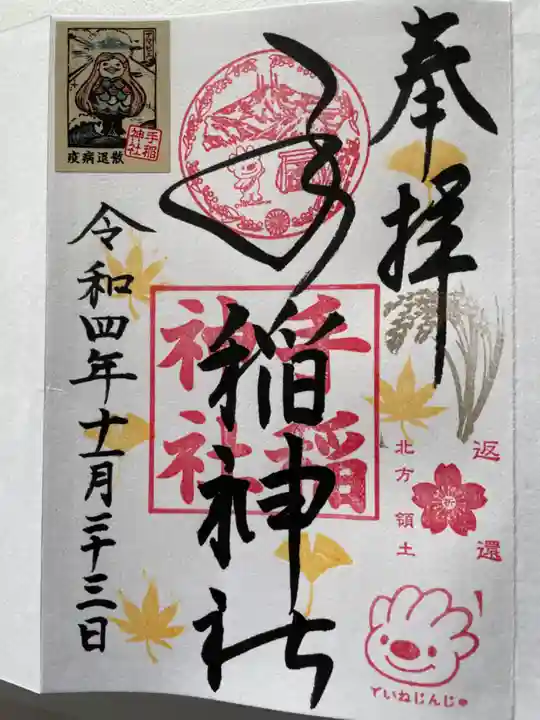 奉拝
手稲神社
手稲
神社
返還
北方領土
ていねじんじゃ
令和四年十一月二十三日
疫病退散
手稲
神社